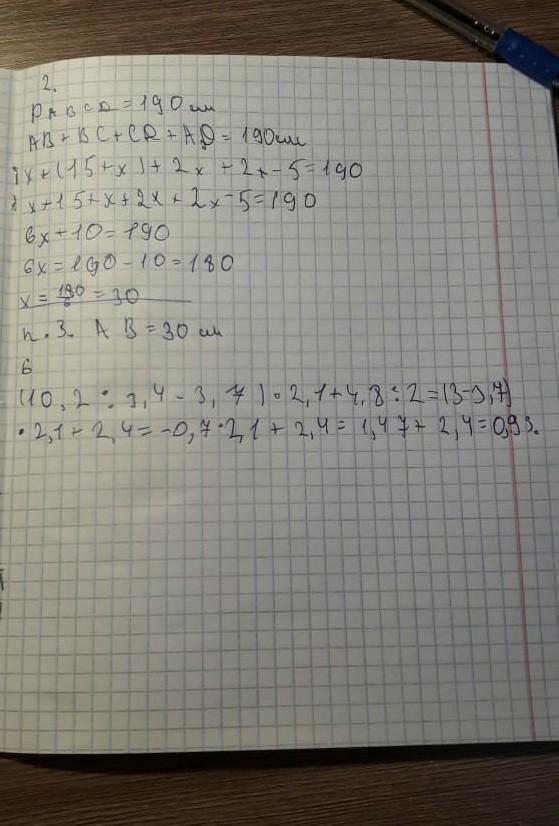 2.
P A B C D = 190 см
AB + BC + CD + AD = 190см
x + (15 + x) + 2x + 2x - 5 = 190
x + 15 + x + 2x + 2x - 5 = 190
6x + 10 = 190
6x = 190 - 10 = 180
x = 180/6 = 30
п. 3. AB = 30 см
6
(10,2 : 3,4 - 3,7) · 2,1 + 4,8 : 2 = (3 - 3,7)
· 2,1 + 2,4 = -0,7 · 2,1 + 2,4 = 1,47 + 2,4 = 0,93.